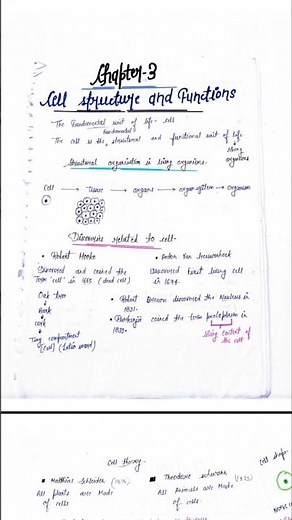 Chapter-3
Cell structure and Functions
The Fundamental unit of life- cell
fundamental
The cell is the structural and functional unit of life
living organisms
Structural organisation in living organisms.
Cell → Tissue → organs → organ system → organism
Discoveries related to cell-
• Robert Hooke
Discovered and coined the
Term "cell" in 1665 (dead cell)
Oak tree
Bark
cork
Tiny compartment
[cell] (Latin word)
• Anton Van Leeuwenhoek
Discovered first living cell
in 1674.
• Robert Brown discovered the Nucleus in
1831.
• Purkinje coined the term protoplasm in
1839.
living content of
the cell
Cell theory-
■ Matthias Schleiden
All plants are Made
of cells
■ Theodore schwann
All Animals are Made
of cells.
Cell